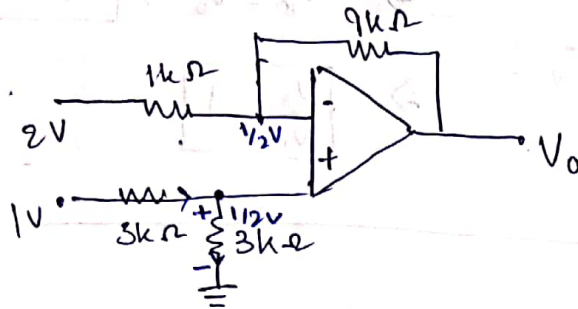 9kΩ
1kΩ
2V
1/2V
-
+
V0
1V
3kΩ
+ 1/2V
3kΩ
-